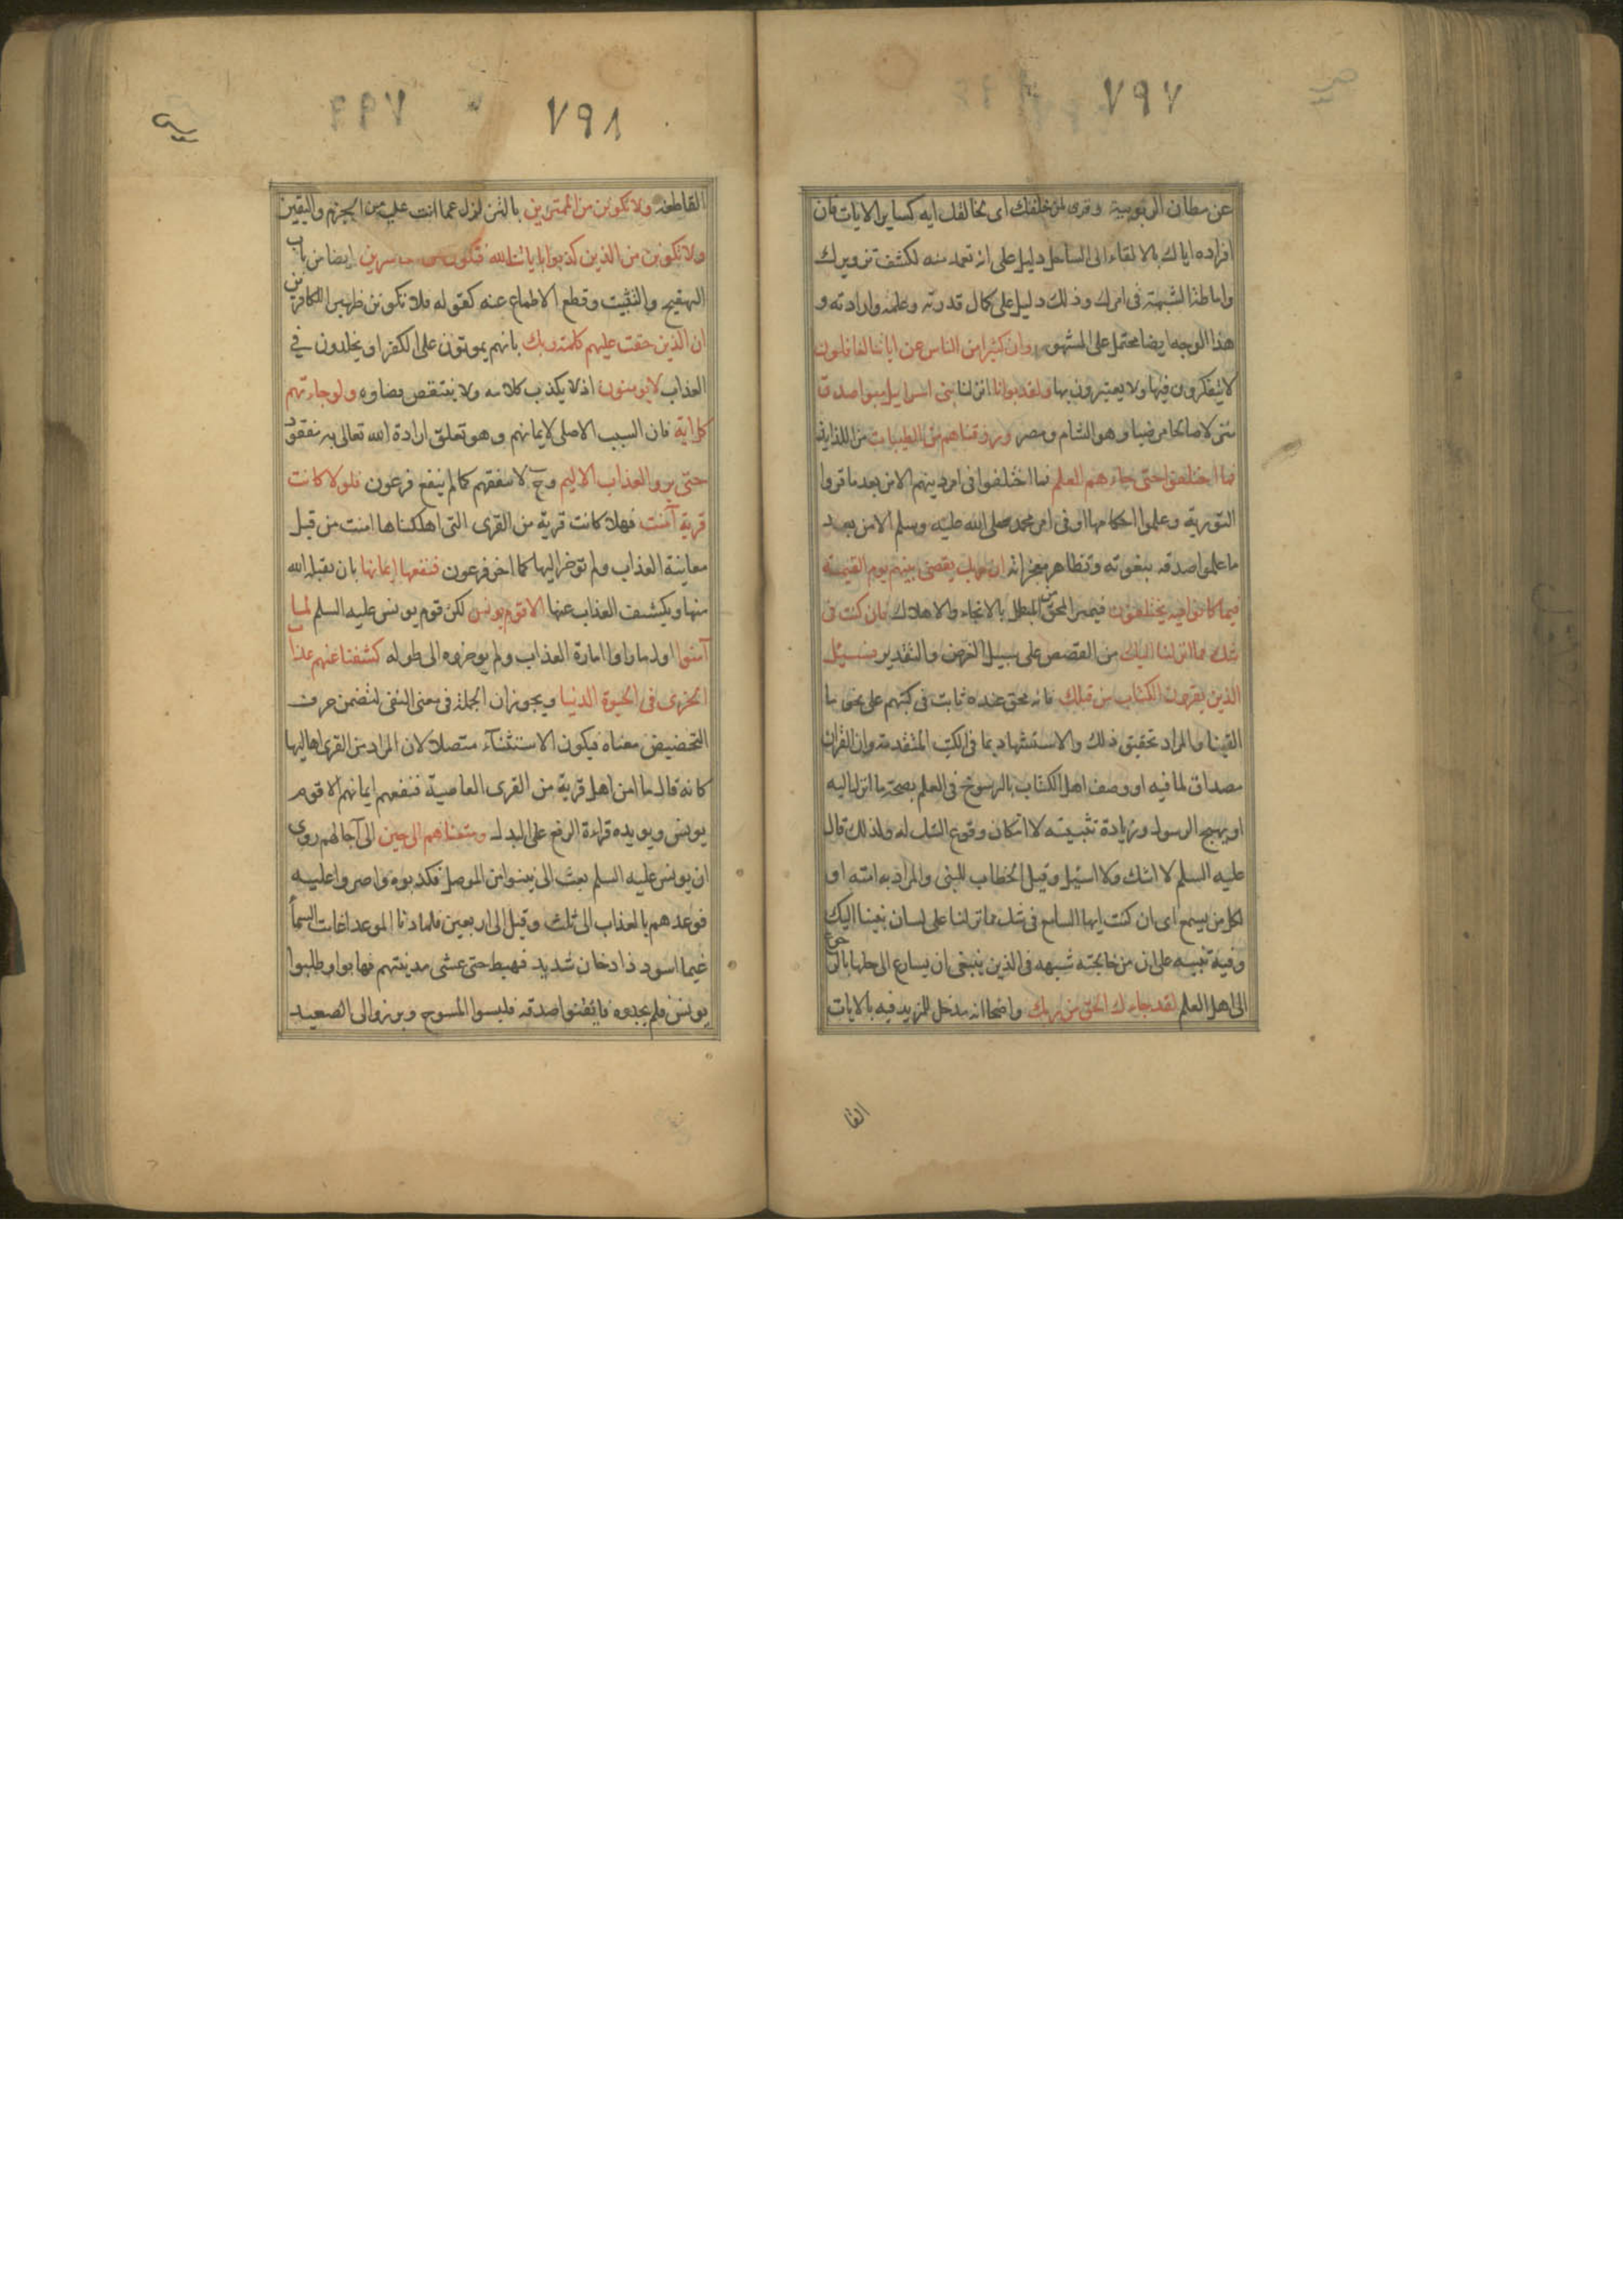 ٧٩٧
عن مظان الربوبية وقرى لمن خلقك اى لخالقك اية كساير الايات فان
افراده اياك بالالقاء الى الساحل دليل على انه تعمد منه لكشف تزويرك
واماطة الشبهة فى امرك وذلك دليل على كمال قدرته وعلمه وارادته و
هذا الوجه ايضا محتمل على المشهور وان كثيرا من الناس عن اياتنا لغافلون
لا يتفكرون فيها ولا يعتبرون بها ولقد بوانا انزلنا بنى اسرايل مبوا صدق
منزلا صالحا مرضيا وهو الشام ومصر ورزقناهم من الطيبات من اللذايذ
فما اختلفوا حتى جاءهم العلم فما اختلفوا فى امر دينهم الا من بعد ما قروا
التورية وعلموا احكامها او فى امر محمد صلى الله عليه وسلم الا من بعد
ما علموا صدقه بنعوته وتظاهر معجزاته ان ربك يقضى بينهم يوم القيمة
فيما كانوا فيه يختلفون فيميز المحق من المبطل بالانجاء والاهلاك فان كنت فى
شك مما انزلنا اليك من القصص على سبيل الفرض والتقدير فسئل
الذين يقرءون الكتاب من قبلك فانه محقق عنده ثابت فى كتبهم على نحو ما
القينا والمراد تحقيق ذلك والاستشهاد بما فى الكتب المتقدمة وان القران
مصداق لما فيه او وصف اهل الكتاب بالرسوخ فى العلم بصحة ما انزل اليه
او يهيج الرسول وزيادة تثبيته لا امكان وقوع الشك له ولذلك قال
عليه السلم لا اشك ولا اسئل وقيل الخطاب للنبى والمراد به امته او
لكل من يسمع اى ان كنت ايها السامع فى شك مما نزلنا على لسان نبينا اليك
وفيه تنبيه على ان من خالجته شبهه فى الدين ينبغى ان يسارع الى حلها بالرجوع
الى اهل العلم لقد جاءك الحق من ربك واضحا انه مدخل للمزيد فيه بالايات
القا
٧٩٨
القاطعه ولا تكونن من الممترين بالتزلزل عما انت عليه من الجزم واليقين
ولا تكونن من الذين كذبوا بايات الله فتكون من الخاسرين ايضا من باب
التهييج والتثبيت وقطع الاطماع عنه كقوله فلا تكونن ظهيرا للكافرين
ان الذين حقت عليهم كلمة ربك بانهم يموتون على الكفر او يخلدون فى
العذاب لا يومنون اذ لا يكذب كلامه ولا ينتقض قضاوه ولو جاءتهم
كل اية فان السبب الاصلى لايمانهم وهو تعلق ارادة الله تعالى به مفقود
حتى يروا العذاب الاليم وح لا ينفعهم كما لم ينفع فرعون فلولا كانت
قرية آمنت فهلا كانت قرية من القرى التى اهلكناها امنت من قبل
معاينة العذاب ولم توخر اليها كما اخر فرعون فنفعها ايمانها بان يقبله الله
منها ويكشف العذاب عنها الا قوم يونس لكن قوم يونس عليه السلم لما
آمنوا اول ما راوا امارة العذاب ولم يوخروه الى حلوله كشفنا عنهم عذاب
الخزى فى الحيوة الدنيا ويجوز ان الجملة فى معنى النفى لتضمن حرف
التحضيض معناه فيكون الاستثنآء متصلا لان المراد من القرى اهاليها
كانه قال ما امن اهل قرية من القرى العاصية فنفعهم ايمانهم الا قوم
يونس ويويده قراءة الرفع على البدل ومتعناهم الى حين الى آجالهم روى
ان يونس عليه السلم بعث الى نينوا من الموصل فكذبوه واصروا عليه
فوعدهم بالعذاب الى ثلث وقيل الى اربعين فلما دنا الموعد اغامت السمآ
غيما اسود ذا دخان شديد فهبط حتى غشى مدينتهم فهابوا وطلبوا
يونس فلم يجدوه فايقنوا صدقه فلبسوا المسوح وبرزوا الى الصعيد